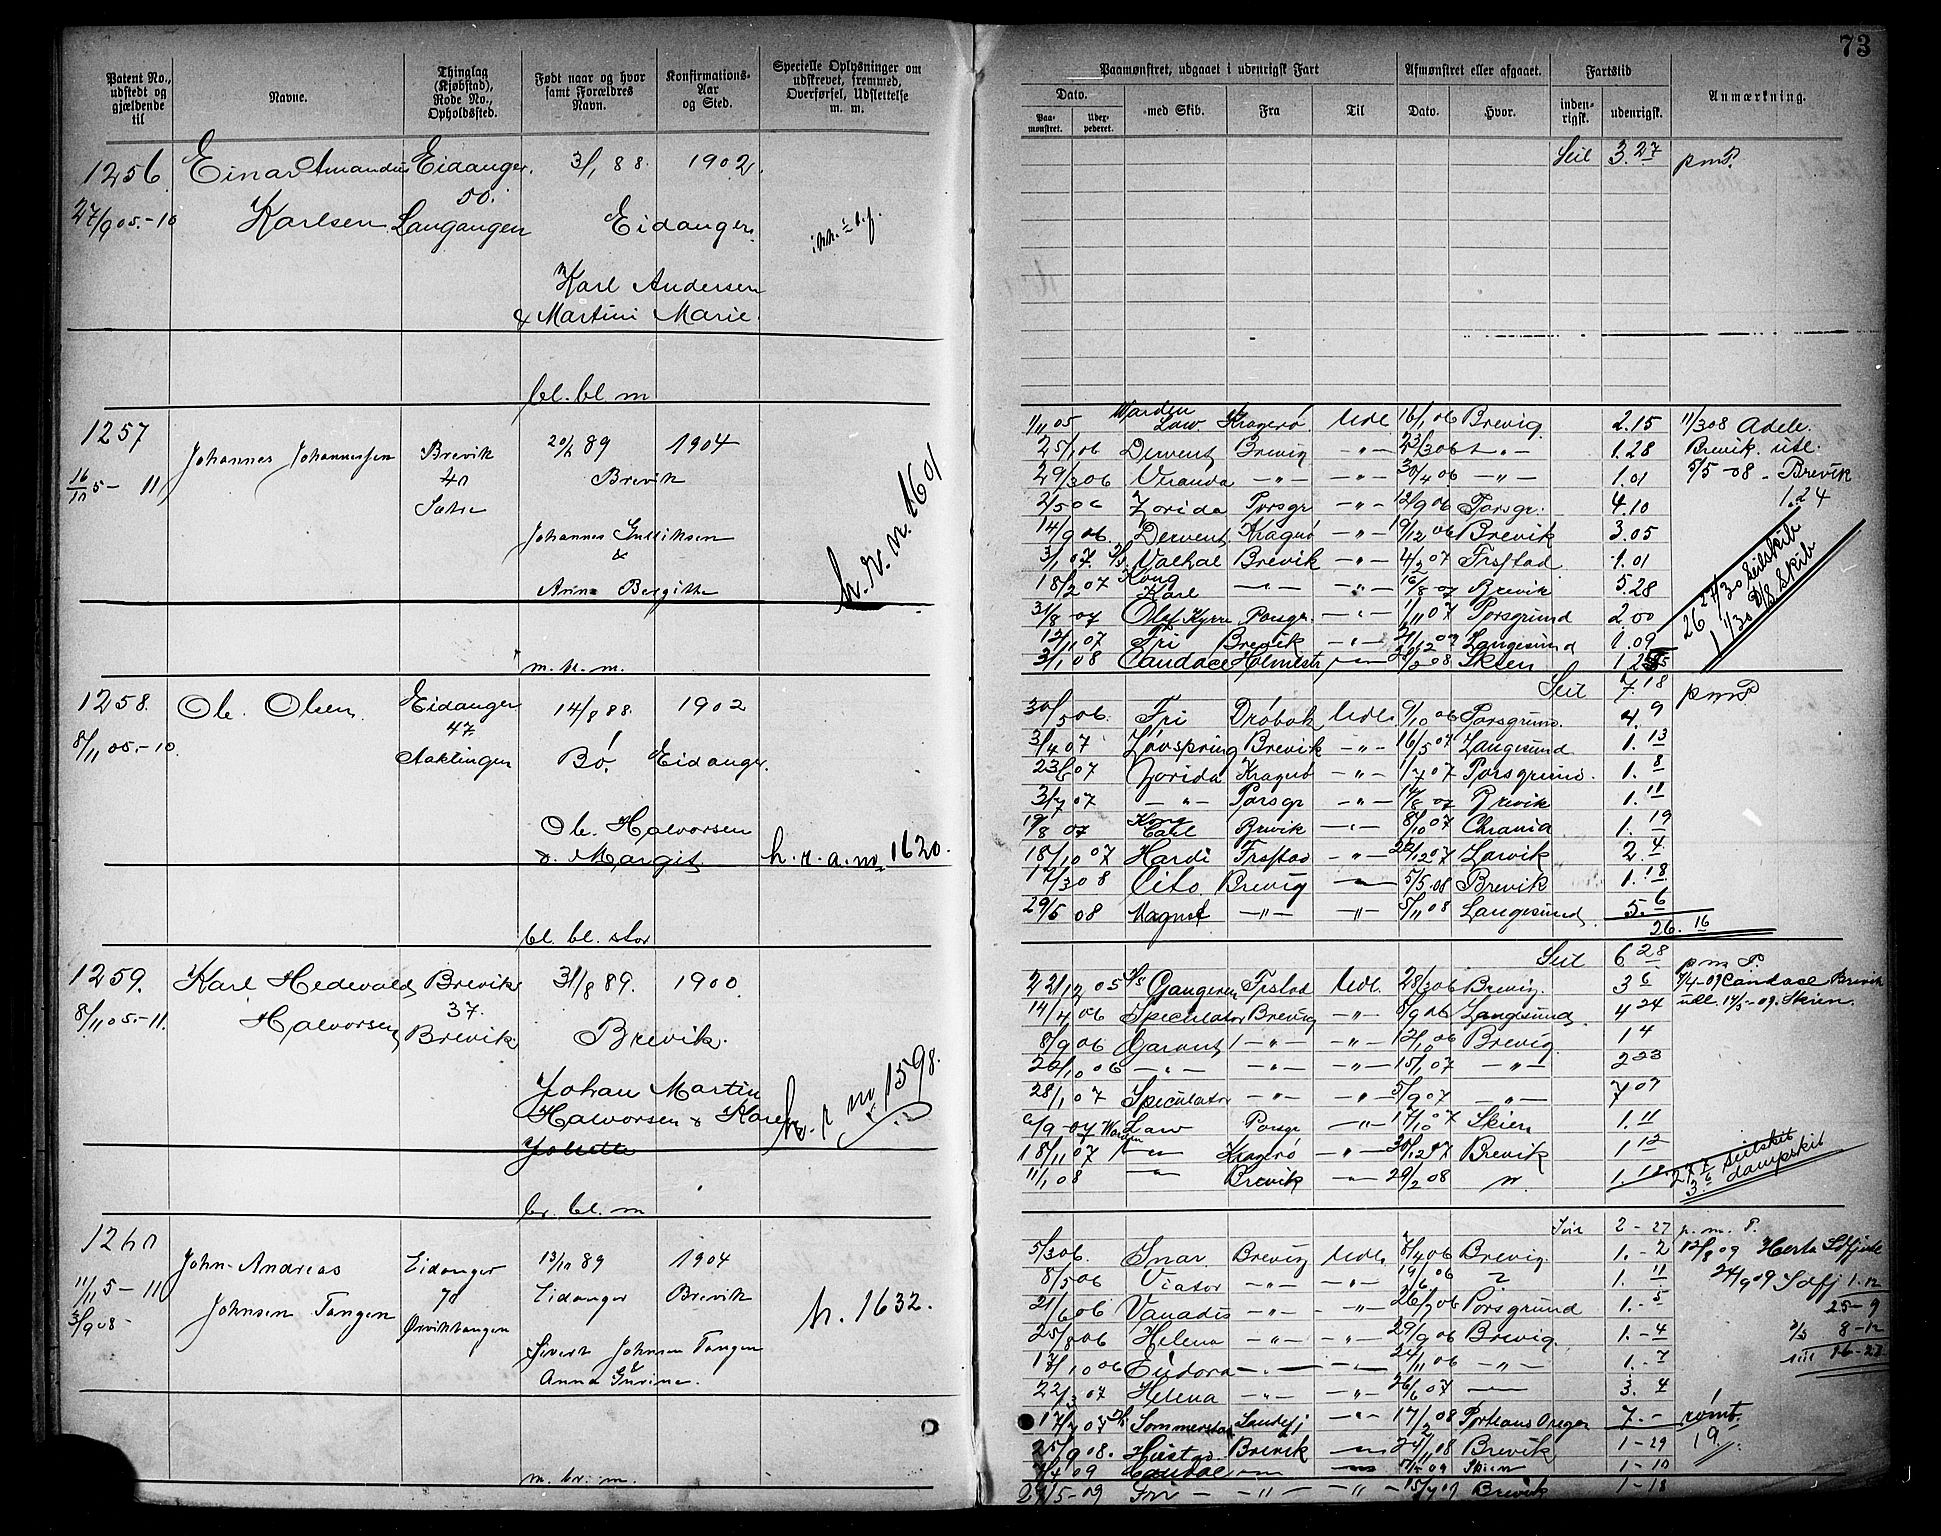 73
Patent No., udstedt og gjældende til
Navne.
Thinglag (Kjøbstad), Rode No., Opholdssted.
Født naar og hvor samt Forældres Navn.
Konfirmations-Aar og Sted.
Specielle Oplysninger om udskrevet, fremmed, Overførsel, Udslettelse m. m.
Paamønstret, udgaaet i udenrigsk Fart
Afmønstret eller afgaaet.
Fartstid
Anmærkning.
Dato.
Paa-mønstret.
Uder-pederet.
med Skib.
Fra
Til
Dato.
Hvor.
inden-rigsk.
udenrigsk.
1256 Einar Amandus Eidanger 3/1 88. 1902
50.
27/9 05.-10 Karlsen Langangen Eidanger
Karl Andersen
& Martini Marie.
bl. bl. m
Seil 3.27 pmP.
1257 Johannes Johannessen Brevik 89 1904
16/10 5-11 40 Brevik
Johannes Gulliksen
&
Anne Bergitte
h. r. n. 1601
m. n. m.
1/11 05 Warden Law Kragerø Udl 16/1 06 Brevig 2.15 11/3 08 Adele.
25/1 06 Derwent Brevig -"- 23/3 06 -"- 1.28 Brevik utl.
29/3 06 Veranda -"- -"- 30/4 06 -"- 1.01 5/5-08 - Brevik
2/5 06 Zorida Porsgr -"- 12/9 06 Porsgr. 4.10 1.24
14/9 06. Derwent Kragrø -"- 19/12 06 Brevik 3.05
3/1 07. Valhal Brevik -"- 4/2 07 Frstad 1.01
18/2 07 Kong Karl -"- -"- 16/8 07 Brevik 5.28
31/8-07 Olaf Kyrre Porsgr. -"- 1/11 07 Porsgrund 2 00
12/11 07 Fri Brevik -"- 21/12 07 Langesund 1.09
3/1 08 Candace Holmestr -"- 2 08 Skien
26 27/30 Seilskib
1 1/30 D/S Skib
1258. Ole Olsen Eidanger 14/8 88. 1902
47.
8/11 05.-10. Bø. Eidanger.
Ole Halvorsen
& Margit
h. r. a. no 1620.
bl. bl. stor
Seil 7.18 pmP
30/5 06. Fri Drøbak Udl. 9/10 06 Porsgrund. 4. 9
3/4 07 Lovspring Brevik -"- 16/5 07 Langesund 1. 13
23/5 07 Zorida Kragerø -"- 1/7 07 Porsgrund. 1. 8
3/7 07 -"- Porsgr -"- 14/8 07 Brevik 1. 11
19/8 07 Kong Carl Brevik -"- 8/10 07 Chrania 1. 19
18/10 07 Hardi Frstad -"- 22/12 07 Larvik 2. 4
17/3 08 Cito Brevig -"- 5/5 08 Brevik 1. 18
29/5 08 Magnat -"- -"- 5/11 08 Langesund 5. 6
26. 16
1259. Karl Hedevald Brevik 31/8 89. 1900
37.
8/11 05.-11. Halvorsen Brevik Brevik.
Johan Martin
Halvorsen & Karen
h. r no 1598.
br. bl. m
Seil 6 28 p m P.
21/12 05 Gangeren Frstad Udl. 28/3 06 Brevig. 3 6 7/4-09 Candace Brevik
14/4 06 Speculator Brevig -"- 8/9 06 Langesund. 4 24 udl. 14/5-09. Skien.
8/9 06 Garant -"- -"- 12/10 06 Brevig 1 4
20/10 06 -"- -"- -"- 15/1 07 -"- 2 23
28/1 07 Speculator -"- -"- 5/9 07 -"- 7 07
6/9-07 Warden Law Porsgr -"- 17/10 07 Skien 1. 11
18/11 07 -"- Kragerø -"- 30/12 07 Brevik 1 12
11/1 08 -"- Brevik -"- 29/2 08 1. 18
27 7 seilskib
3. 6 dampskib
1260 John Andreas Eidanger 13/10 89 1904
11/11 5-11 Johnsen Tangen Eidanger Brevik
3/9 08- Ørviktangen
Sivert Johnsen Tangen
&
Anna Gurine.
h. 1632.
m. br. m.
2-27 p. m. P.
5/3 06. Snar Brevig Udl. 7/4 06 Brevig. 1.-2 Herta
8/5 06 Viator -"- -"- 19/6 06 1. 11 24/9 09 1-12
21/6 06 Vanadis -"- -"- 26/7 06 Porsgrund 1.-5 25-9
25/8 06 Helena -"- -"- 29/9 06 Brevig. 1.-4 8-12
17/10 06 Eudora -"- -"- 24/11 06 -"- 1.-7 16-27
22/3 07 Helena -"- -"- 26/6 07 -"- 3. 4
17/7 07 Sommerstad Sandefj -"- 17/2 08 Portland Oregon 7.- rømt.
25/9 08. Brevik -"- 24/11 08 Brevik 1-29 19.
7/4 09 Candace -"- -"- 09 Skien 1-10
27/5-09 Fri -"- -"- 15/7 09 Brevik 1-18